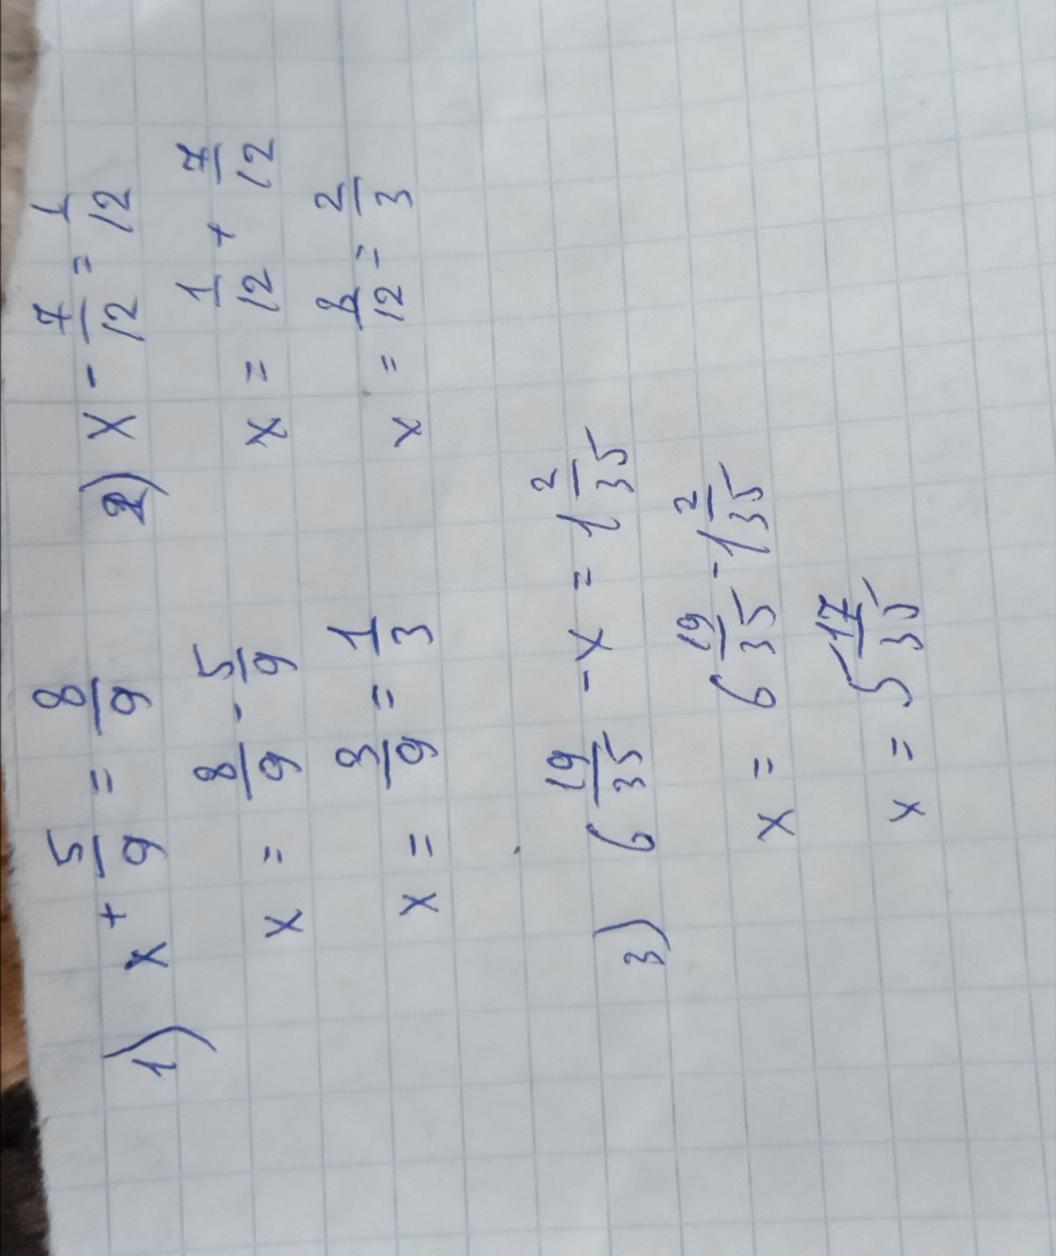 1) x + 5/9 = 8/9
x = 8/9 - 5/9
x = 3/9 = 1/3
2) x - 7/12 = 1/12
x = 1/12 + 7/12
x = 8/12 = 2/3
3) 6 19/35 - x = 1 2/35
x = 6 19/35 - 1 2/35
x = 5 17/35